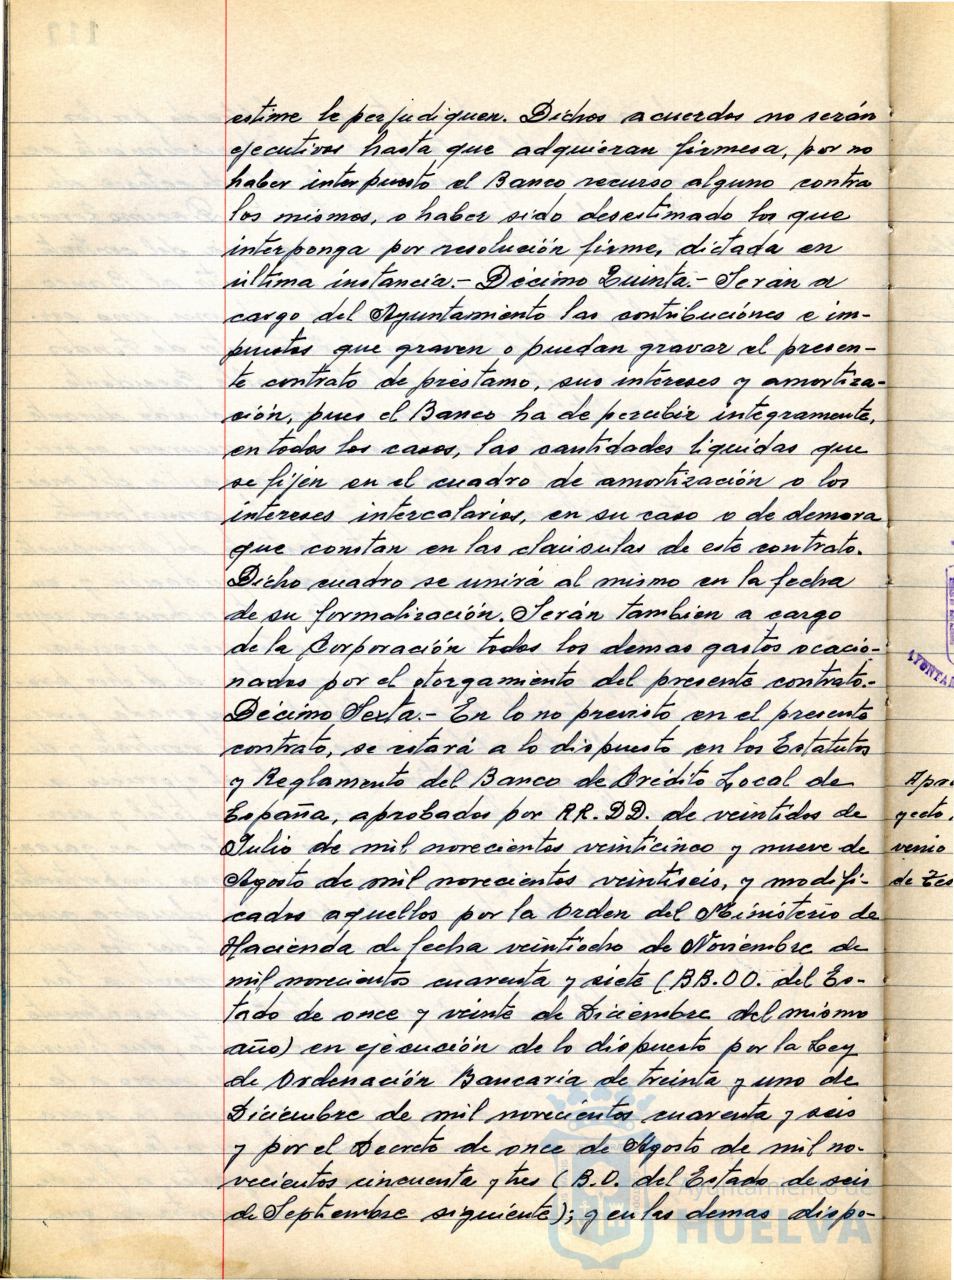 estime le perjudiquen. Dichos acuerdos no serán
ejecutivos hasta que adquieran firmesa, por no
haber interpuesto el Banco recurso alguno contra
los mismos, o haber sido desestimado los que
interponga por resolución firme, dictada en
última instancia.- Décimo Quinta.- Serán a
cargo del Ayuntamiento las contribuciónes e im-
puestos que graven o puedan gravar el presen-
te contrato de préstamo, sus intereses y amortiza-
ción, pues el Banco ha de percibir integramente,
en todos los casos, las cantidades liquidas que
se fijen en el cuadro de amortización o los
intereses intercalarios, en su caso o de demora
que constan en las claúsulas de este contrato.
Dicho cuadro se unirá al mismo en la fecha
de su formalización. Serán tambien a cargo
de la Corporación todos los demas gastos ocacio-
nados por el otorgamiento del presente contrato.-
Décimo Sexta.- En lo no previsto en el presente
contrato, se estará a lo dispuesto en los Estatutos
y Reglamento del Banco de Crédito Local de
España, aprobados por RR.DD. de veintidos de
Julio de mil novecientos veinticinco y nueve de
Agosto de mil novecientos veintiseis, y modifi-
cados aquellos por la Orden del Ministerio de
Hacienda de fecha veintiocho de Noviembre de
mil novecientos cuarenta y siete (BB.OO. del Es-
tado de once y veinte de Diciembre del mismo
año) en ejecución de lo dispuesto por la Ley
de Ordenación Bancaria de treinta y uno de
Diciembre de mil novecientos cuarenta y seis
y por el Decreto de once de Agosto de mil no-
vecientos cincuenta y tres (B.O. del Estado de seis
de Septiembre siguiente); y en las demas dispo-
Apro
yecto,
venio
de Tes
AYUNTAM
Ayuntamiento de
HUELVA